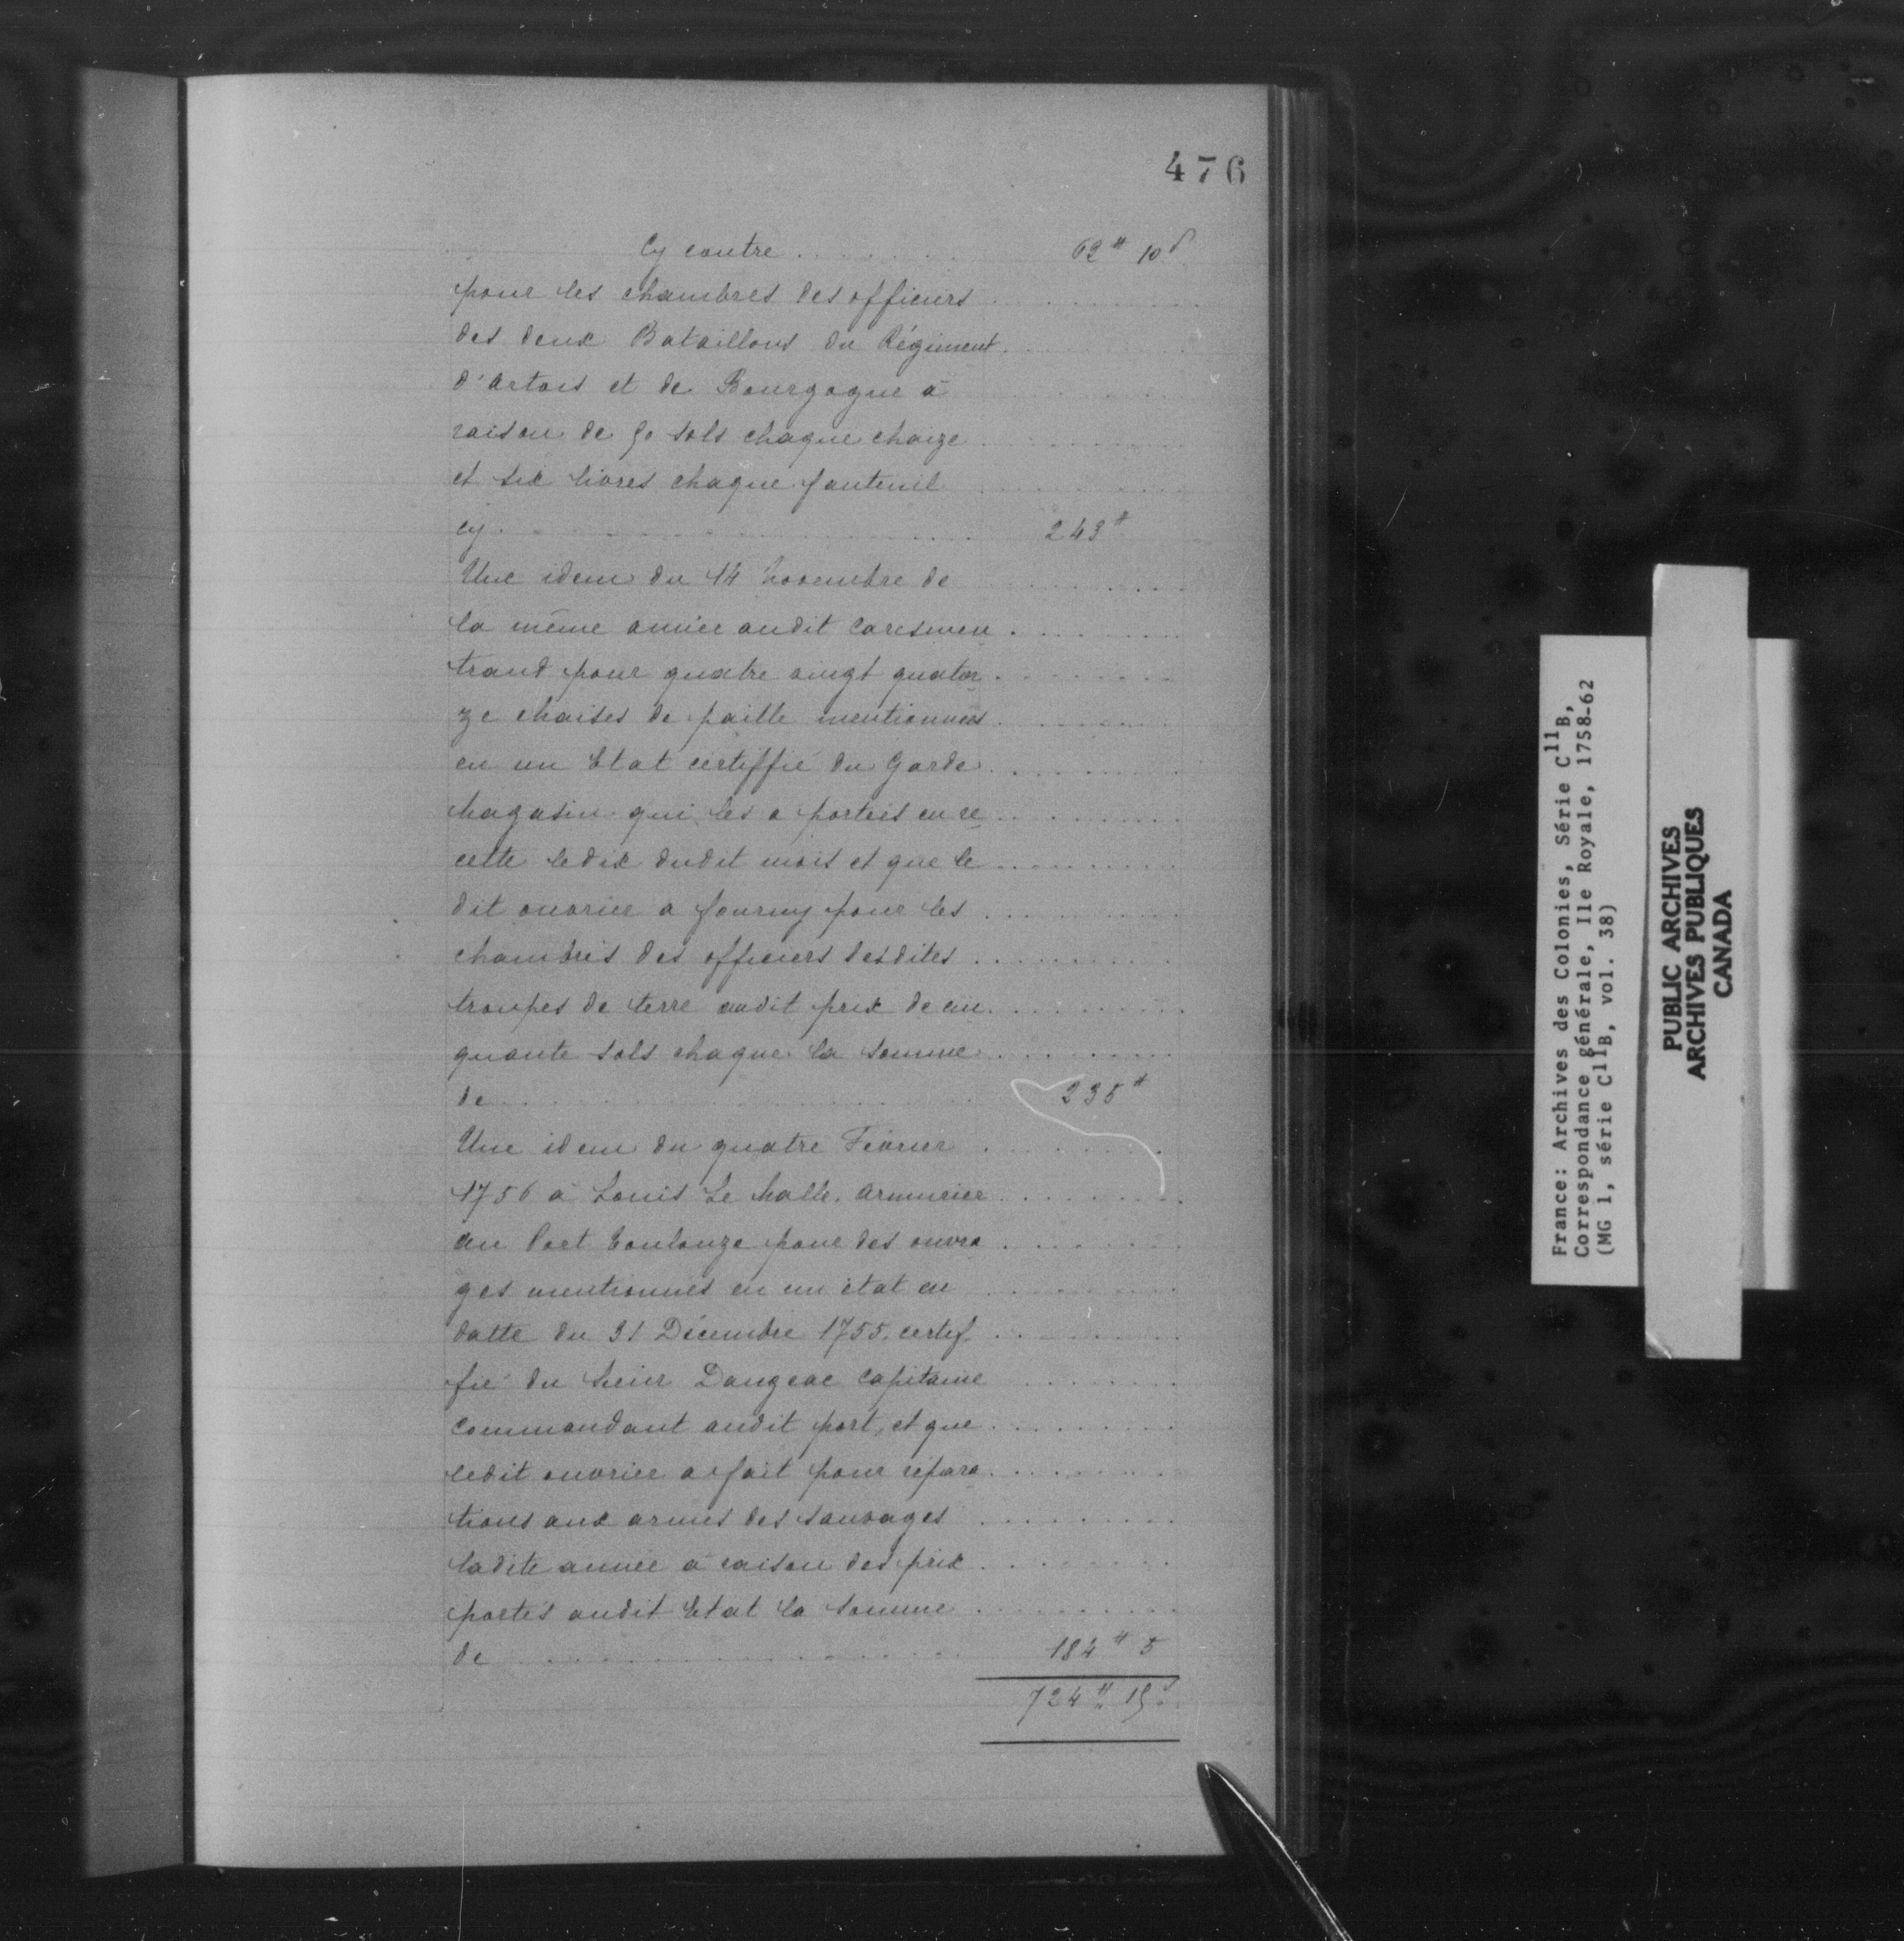 476
Cy contre . . . . . . . 62# 10s
pour les chambres des officiers
des deux Bataillons du Régiment
d'artois et de Bourgogne à
raison de 50 sols chaque chaize
et six livres chaque fauteuil
cy . . . . . . . 243#
Une idem du 14 Novembre de
la même année audit Caresmen
trand pour quatre vingt quator
ze chaises de paille mentionnées
en un Etat certiffié du Garde
Magasin qui les a portées en re
cette le dix dudit mois et que le
dit ouvrier a fourny pour les
chambres des officiers desdites
troupes de terre audit prix de cin
quante sols chaque la somme
de . . . . . . . 235#
Une idem du quatre Fevrier
1756 à Louis Le Malle, armurier
au Port Toulouze pour des ouvra
ges mentionnés en un état en
datte du 31 Décembre 1755, certif
fié du Sieur Dangeac Capitaine
commandant audit port, et que
ledit ouvrier a fait pour répara
tions aux armes des sauvages
ladite année à raison des prix
portés audit Etat la somme
de . . . . . . . 184# 5
724# 15s
France: Archives des Colonies, Série C11B,
Correspondance générale, Ile Royale, 1758-62
(MG 1, série C11B, vol. 38)
PUBLIC ARCHIVES
ARCHIVES PUBLIQUES
CANADA